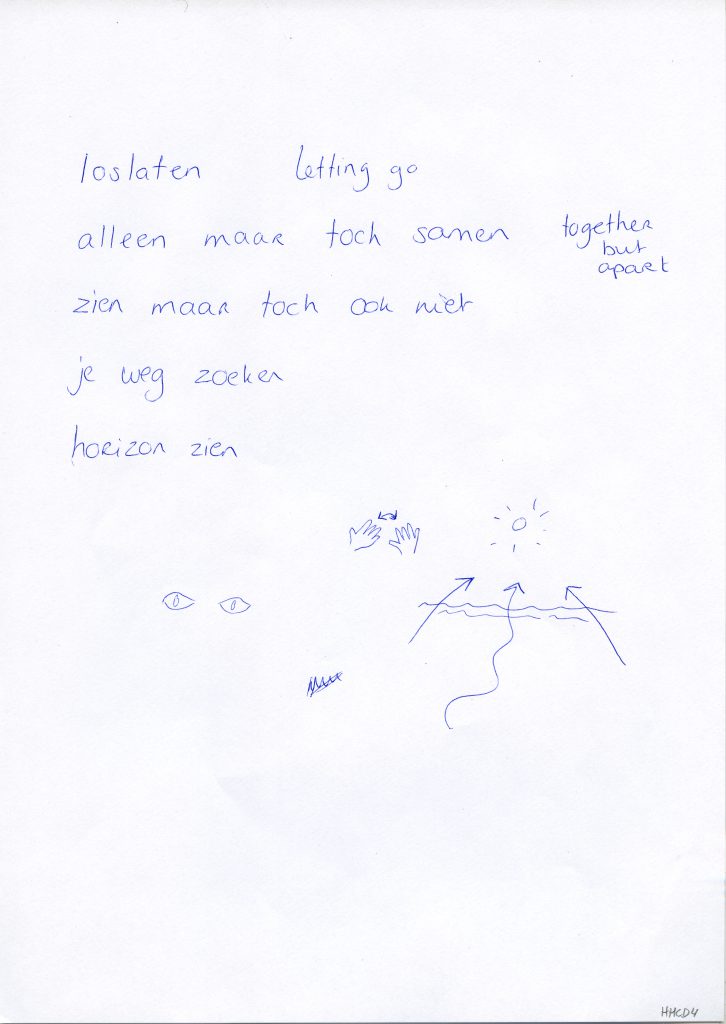 loslaten letting go
alleen maar toch samen together
but
apart
zien maar toch ook niet
je weg zoeken
horizon zien
HHCD4